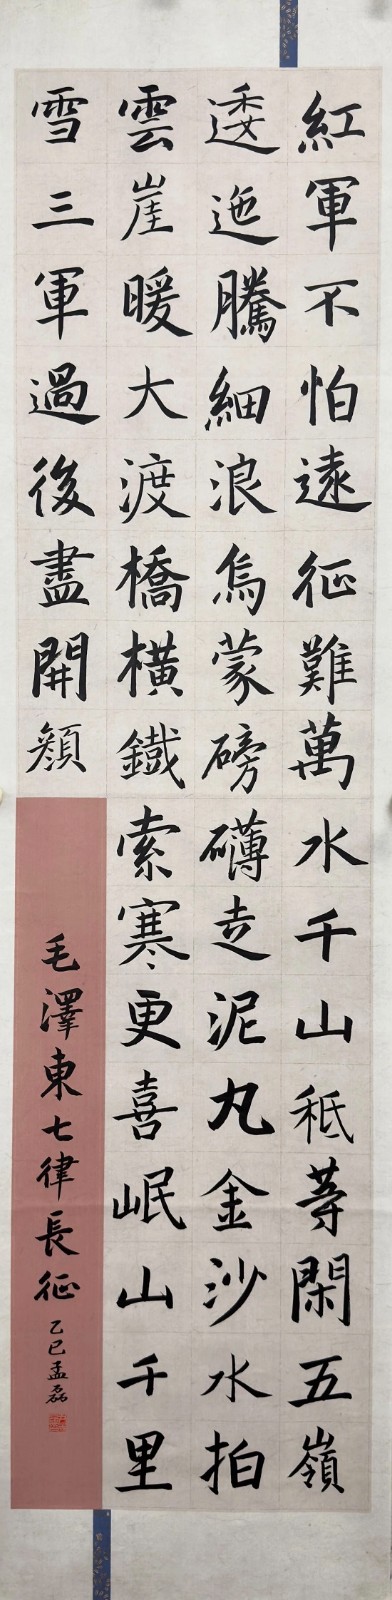 紅軍不怕遠征難萬水千山秖等閑五嶺
逶迤騰細浪烏蒙磅礴走泥丸金沙水拍
雲崖暖大渡橋橫鐵索寒更喜岷山千里
雪三軍過後盡開顏
毛澤東七律長征 乙巳孟磊